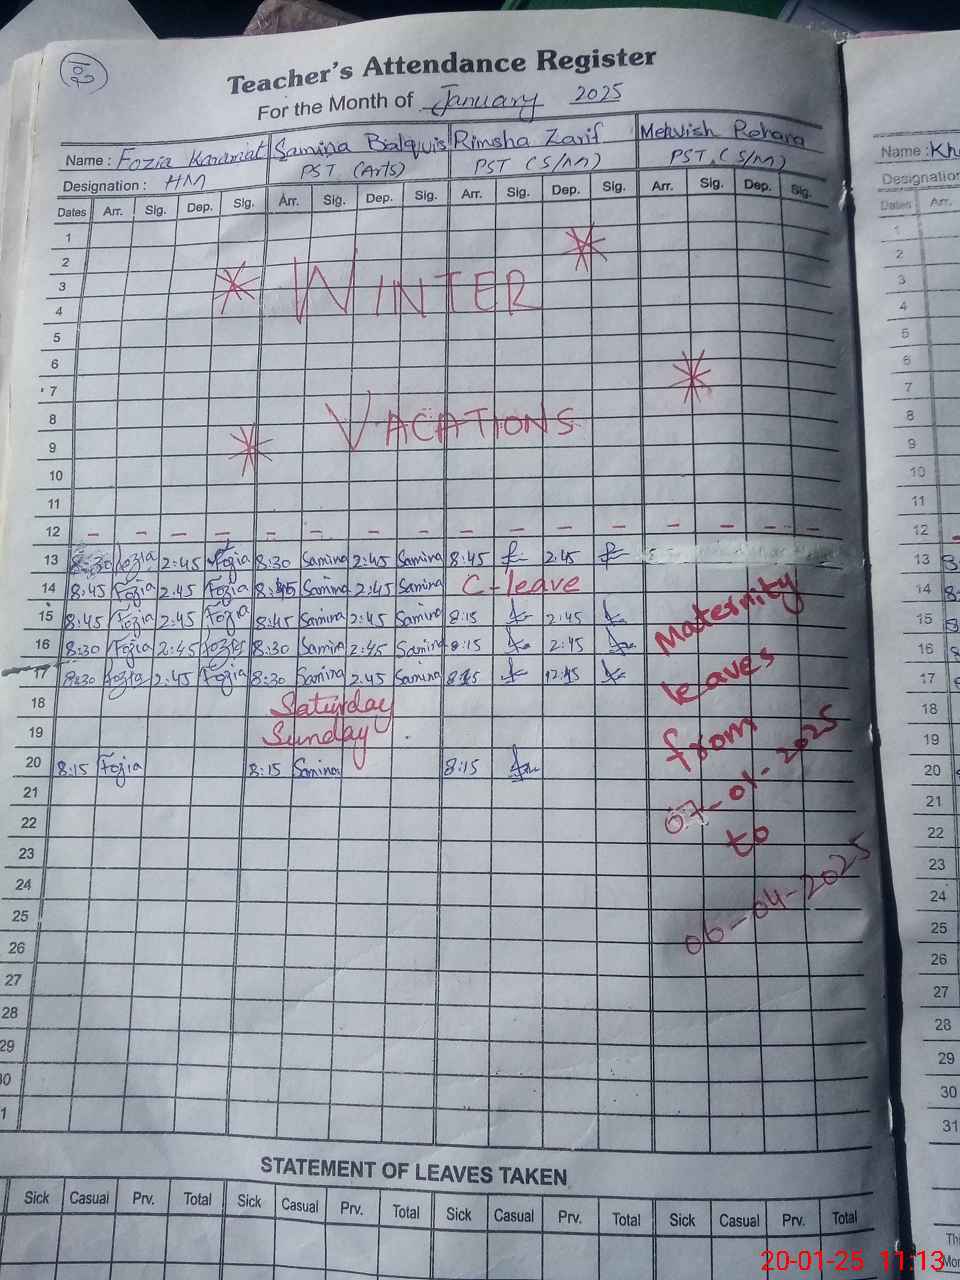 Teacher's Attendance Register
For the Month of January 2025
Name : Fozia Samina Balquis Rimsha Zarif Mehvish
Designation : HM PST (Arts) PST (S/M) PST (S/M)
Dates Arr. Sig. Dep. Sig. Arr. Sig. Dep. Sig. Arr. Sig. Dep. Sig. Arr. Sig. Dep. Sig.
1
2
3
4
WINTER
5
6
7
8
VACATIONS
9
10
11
12 - - - - - - - - - - - - - - - -
13 8:30 Fozia 2:45 Fozia 8:30 Samina 2:45 Samina 8:45 2:45
14 8:45 Fozia 2:45 Fozia 8:45 Samina 2:45 Samina C-leave
15 8:45 Fozia 2:45 Fozia 8:45 Samina 2:45 Samina 8:15 2:45
16 8:30 Fozia 2:45 Fozia 8:30 Samina 2:45 Samina 8:15 2:45
17 8:30 Fozia 2:45 Fozia 8:30 Samina 2:45 Samina
18 Saturday
19 Sunday
20 8:15 Fozia 8:15 Samina 8:15
21
22
23
24
25
26
27
28
29
30
31
Maternity
leaves
from
07-01-2025
to
06-04-2025
STATEMENT OF LEAVES TAKEN
Sick Casual Prv. Total Sick Casual Prv. Total Sick Casual Prv. Total Sick Casual Prv. Total
Name :
Designation
Dates Arr.
1
2
3
4
5
6
7
8
9
10
11
12
13
14
15
16
17
18
19
20
21
22
23
24
25
26
27
28
29
30
31
20-01-25 11:13